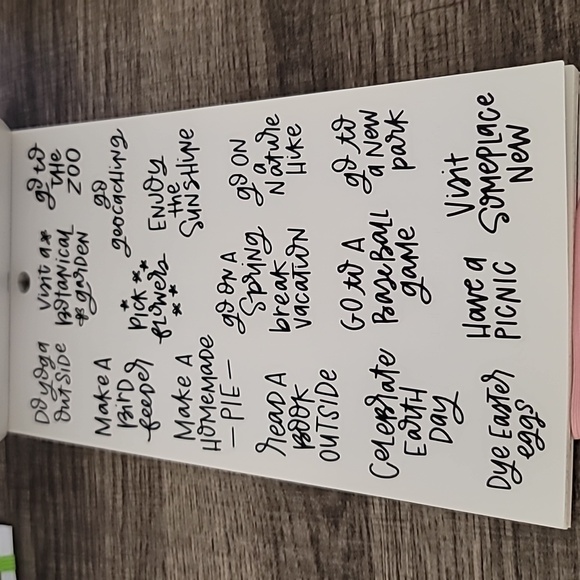 Do yoga
outside
Make A
Bird
feeder
Make A
Homemade
PIE
read A
Book
outside
Celebrate
Earth
Day
Dye Easter
eggs
Visit a
Botanical
garden
pick
flowers
go on A
Spring
break
vacation
Go to A
Baseball
game
Have a
PICNIC
go to
the
ZOO
go
geocaching
Enjoy
the
Sunshine
go on
a
Nature
Hike
go to
a New
park
Visit
Someplace
New